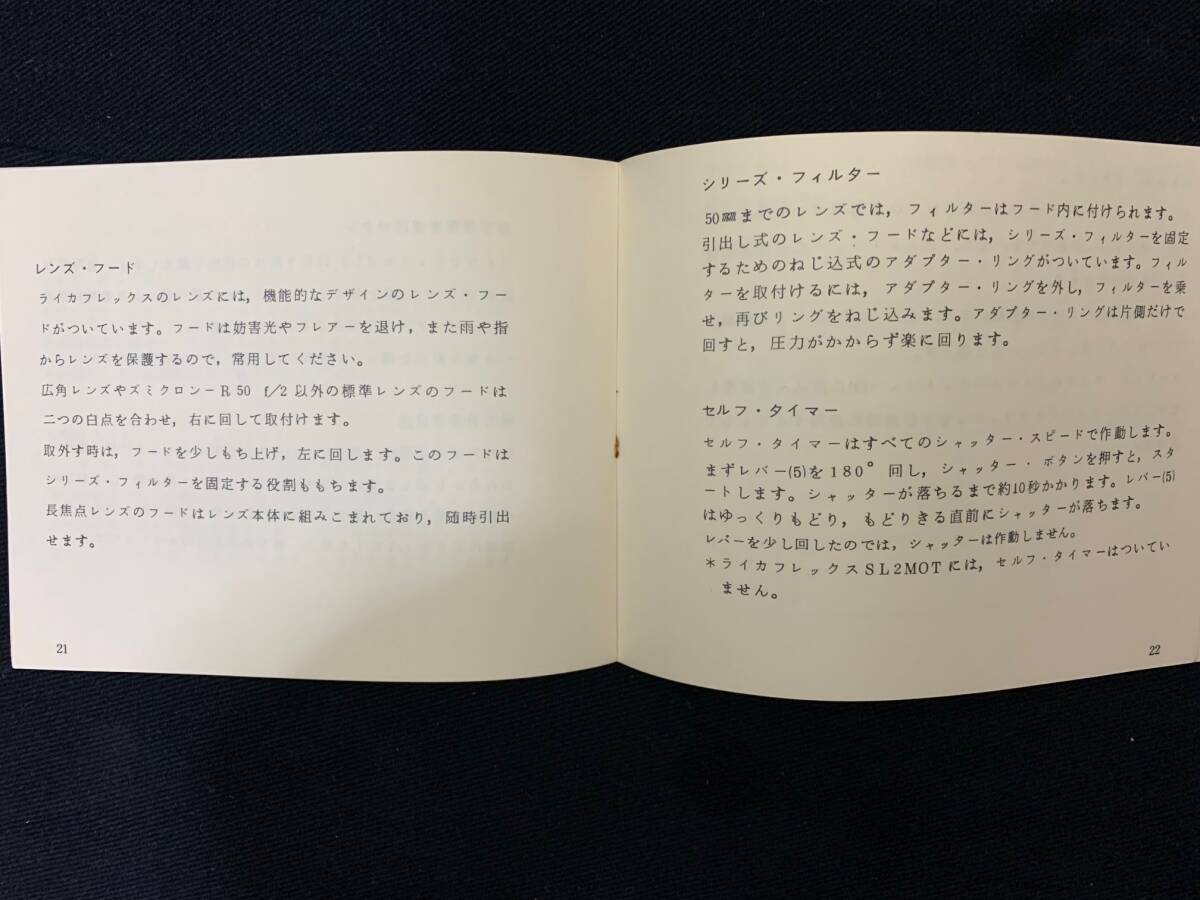 レンズ・フード
ライカフレックスのレンズには，機能的なデザインのレンズ・フー
ドがついています。フードは妨害光やフレアーを退け，また雨や指
からレンズを保護するので，常用してください。
広角レンズやズミクロン－R 50 f/2 以外の標準レンズのフードは
二つの白点を合わせ，右に回して取付けます。
取外す時は，フードを少しもち上げ，左に回します。このフードは
シリーズ・フィルターを固定する役割ももちます。
長焦点レンズのフードはレンズ本体に組みこまれており，随時引出
せます。
21
シリーズ・フィルター
50㎜までのレンズでは，フィルターはフード内に付けられます。
引出し式のレンズ・フードなどには，シリーズ・フィルターを固定
するためのねじ込式のアダプター・リングがついています。フィル
ターを取付けるには，アダプター・リングを外し，フィルターを乗
せ，再びリングをねじ込みます。アダプター・リングは片側だけで
回すと，圧力がかからず楽に回ります。
セルフ・タイマー
セルフ・タイマーはすべてのシャッター・スピードで作動します。
まずレバー(5)を180°回し，シャッター・ボタンを押すと，スタ
ートします。シャッターが落ちるまで約10秒かかります。レバー(5)
はゆっくりもどり，もどりきる直前にシャッターが落ちます。
レバーを少し回したのでは，シャッターは作動しません。
＊ライカフレックスSL2MOTには，セルフ・タイマーはついてい
ません。
22